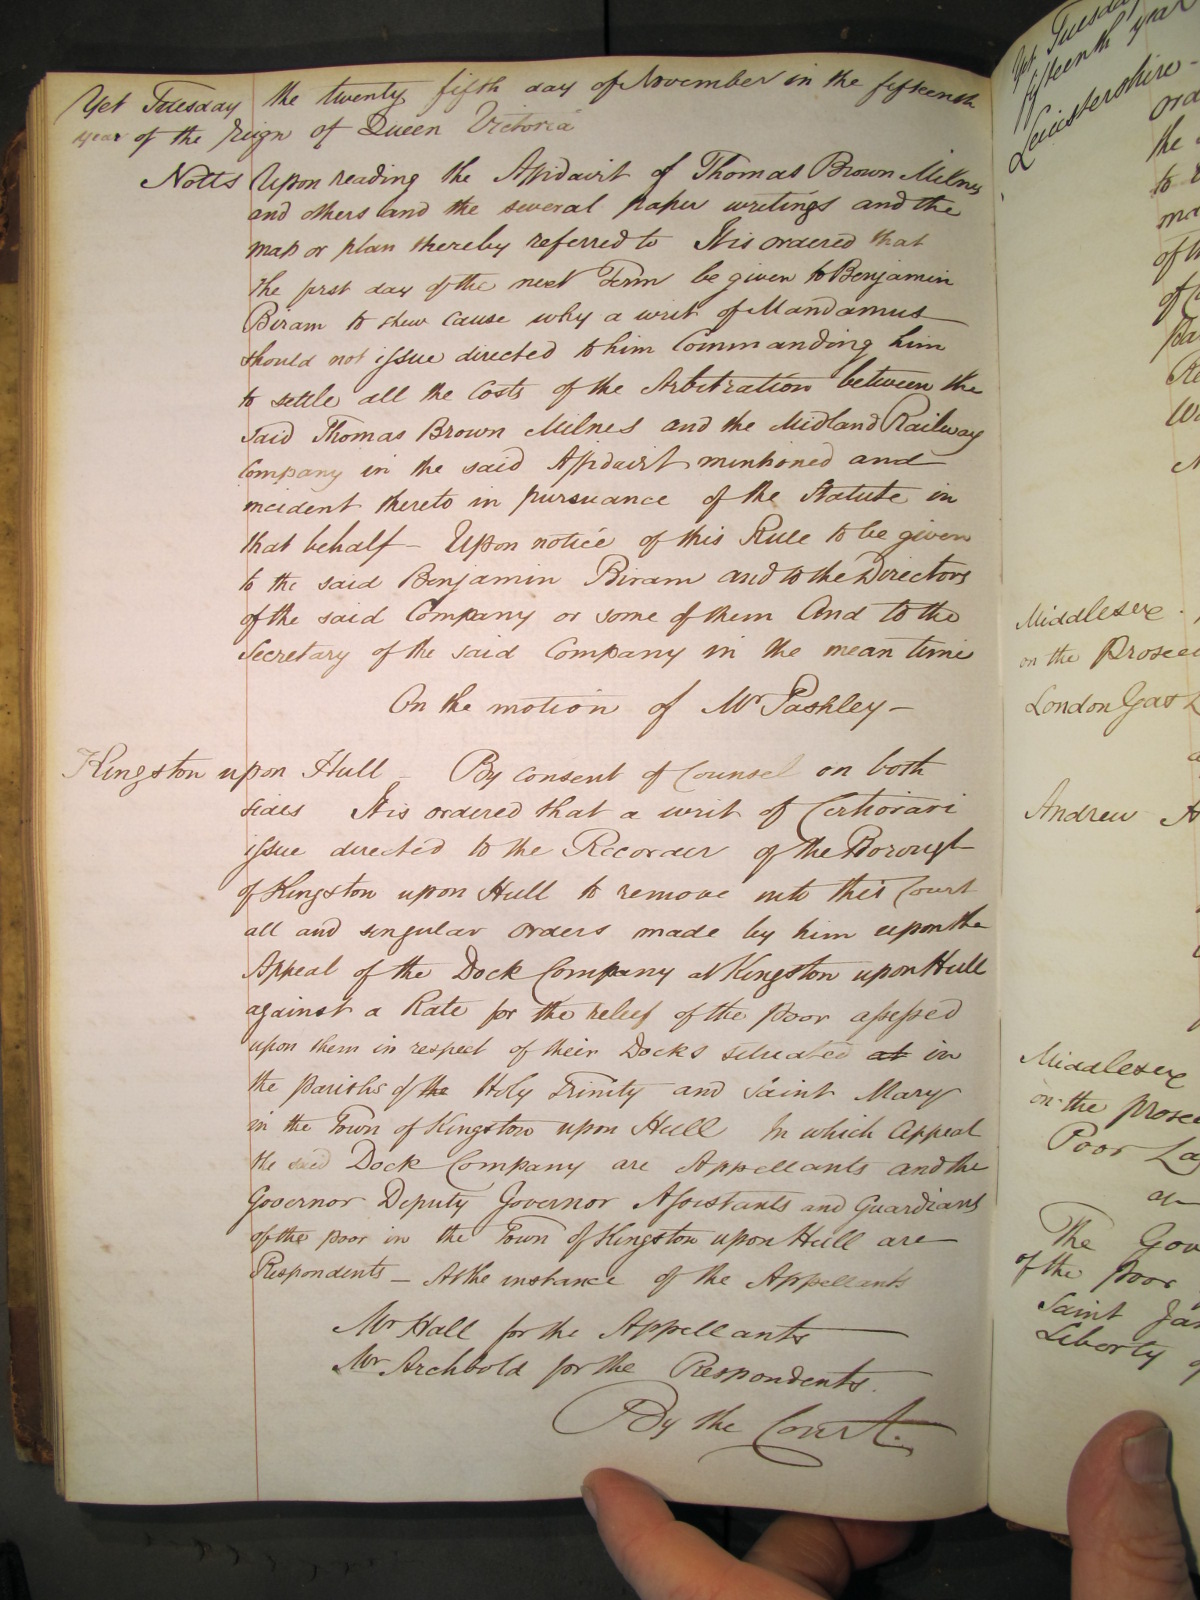 Yet Tuesday the twenty fifth day of November in the fifteenth
year of the reign of Queen Victoria
Notts Upon reading the Affidavit of Thomas Brown Milnes
and others and the several paper writings and the
map or plan thereby referred to It is ordered that
the first day of the next Term be given to Benjamin
Biram to shew cause why a writ of Mandamus
should not issue directed to him Commanding him
to settle all the Costs of the Arbitration between the
said Thomas Brown Milnes and the Midland Railway
Company in the said Affidavit mentioned and
incident thereto in pursuance of the Statute in
that behalf – Upon notice of this Rule to be given
to the said Benjamin Biram and to the Directors
of the said Company or some of them And to the
Secretary of the said Company in the mean time
On the motion of Mr Pashley –
Kingston upon Hull – By consent of Counsel on both
sides It is ordered that a writ of Certiorari
issue directed to the Recorder of the Borough
of Kingston upon Hull to remove into this Court
all and singular orders made by him upon the
Appeal of the Dock Company at Kingston upon Hull
against a Rate for the relief of the Poor assessed
upon them in respect of their Docks situated at in
the parishs of the Holy Trinity and Saint Mary
in the Town of Kingston upon Hull In which Appeal
the said Dock Company are Appellants and the
Governor Deputy Governor Assistants and Guardians
of the poor in the Town of Kingston upon Hull are
Respondents – At the instance of the Appellants
Mr Hall for the Appellants
Mr Archbold for the Respondents.
By the Court.
Yet Tuesday
fifteenth year
Leicestershire –
the
to
of
Middlesex
on the
London Gas
Andrew
Middlesex
on the
Poor
The
of the poor
Saint
Liberty